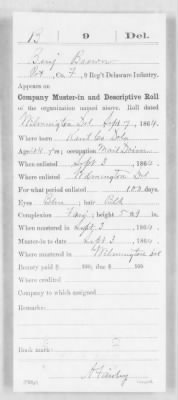 B 9 Del.
Benj Brown
Pvt, Co. F, 9 Reg't Delaware Infantry.
Appears on
Company Muster-in and Descriptive Roll
of the organization named above. Roll dated
Wilmington Del Sept 7, 1864.
Where born Kent Co Del
Age 44 y'rs; occupation
When enlisted Sept 3, 1864.
Where enlisted Wilmington Del
For what period enlisted 100 days.
Eyes Blue; hair Blk
Complexion; height 5 ft 9 in.
When mustered in Sept 3, 1864.
Muster-in to date Sept 3, 1864.
Where mustered in Wilmington Del
Bounty paid $ 100; due $ 100
Where credited
Company to which assigned
Remarks:
Book mark: